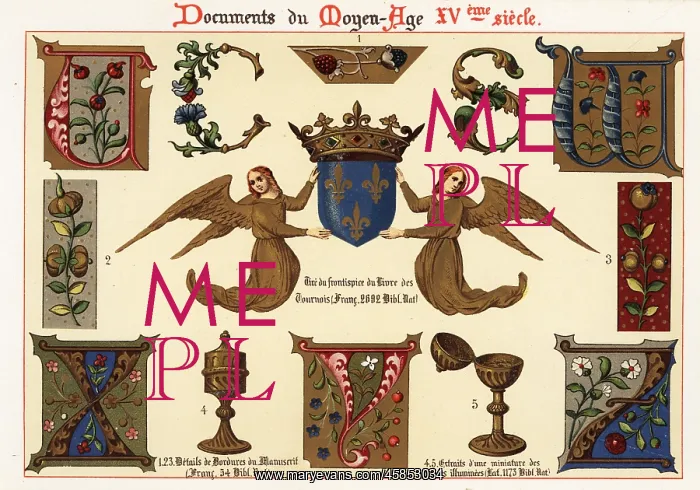 Documents du Moyen-Age XVème siècle.
1
2
3
Tiré du frontispice du Livre des
Tournois (Franç. 2692 Bibl. Nat)
4
5
1.2.3. Détails de Bordures du Manuscrit
(Franç. 54 Bibl. Nat)
4.5. Extraits d'une miniature des
illuminées (Lat. 1173 Bibl. Nat)
ME
PL
ME
PL
www.maryevans.com/45853034